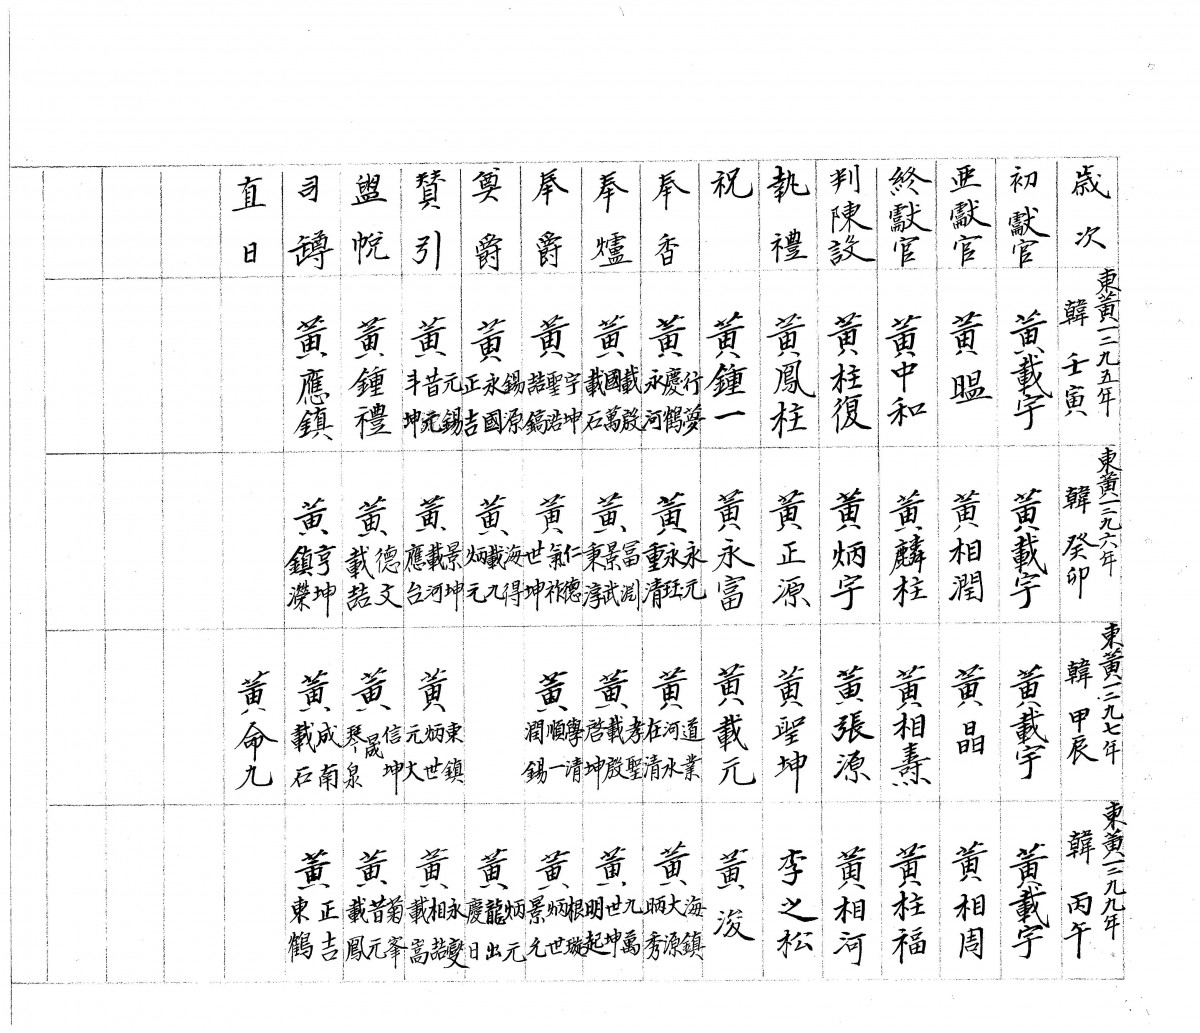 歲次
初獻官
亞獻官
終獻官
判陳設
執禮
祝
奉香
奉爐
奉爵
奠爵
贊引
盥帨
司罇
直日
東黃一二九五年
韓 壬寅
黃載宇
黃昷
黃中和
黃柱復
黃鳳柱
黃鍾一
黃 行夢 慶鶴 永河
黃 載殷 國萬 載石
黃 宇坤 聖浩 喆鎬
黃 錫源 永國 正吉
黃 元錫 昔元 斗坤
黃鍾禮
黃應鎮
東黃一二九六年
韓 癸卯
黃載宇
黃相潤
黃麟柱
黃炳宇
黃正源
黃永富
黃 永元 永玨 重清
黃 冨淵 景武 秉淳
黃 仁德 氣祚 世坤
黃 海得 載九 炳元
黃 景坤 載河 應台
黃 德文 載喆
黃 亨坤 鎮濼
東黃一二九七年
韓 甲辰
黃載宇
黃晶
黃相燾
黃張源
黃聖坤
黃載元
黃 道業 河水 在清
黃 孝聖 載殷 啓坤
黃 學清 順一 潤錫
黃 東鎮 炳世 元大
黃 信坤 晟 琴泉
黃 成南 載石
黃命九
東黃一二九九年
韓 丙午
黃載宇
黃相周
黃柱福
黃相河
李之松
黃浚
黃 海鎮 大源 昞秀
黃 九萬 世坤 明起
黃 根璇 炳世 景元
黃 炳元 龍出 慶日
黃 永變 相喆 載嵩
黃 菊峯 昔元 載鳳
黃 正吉 東鶴